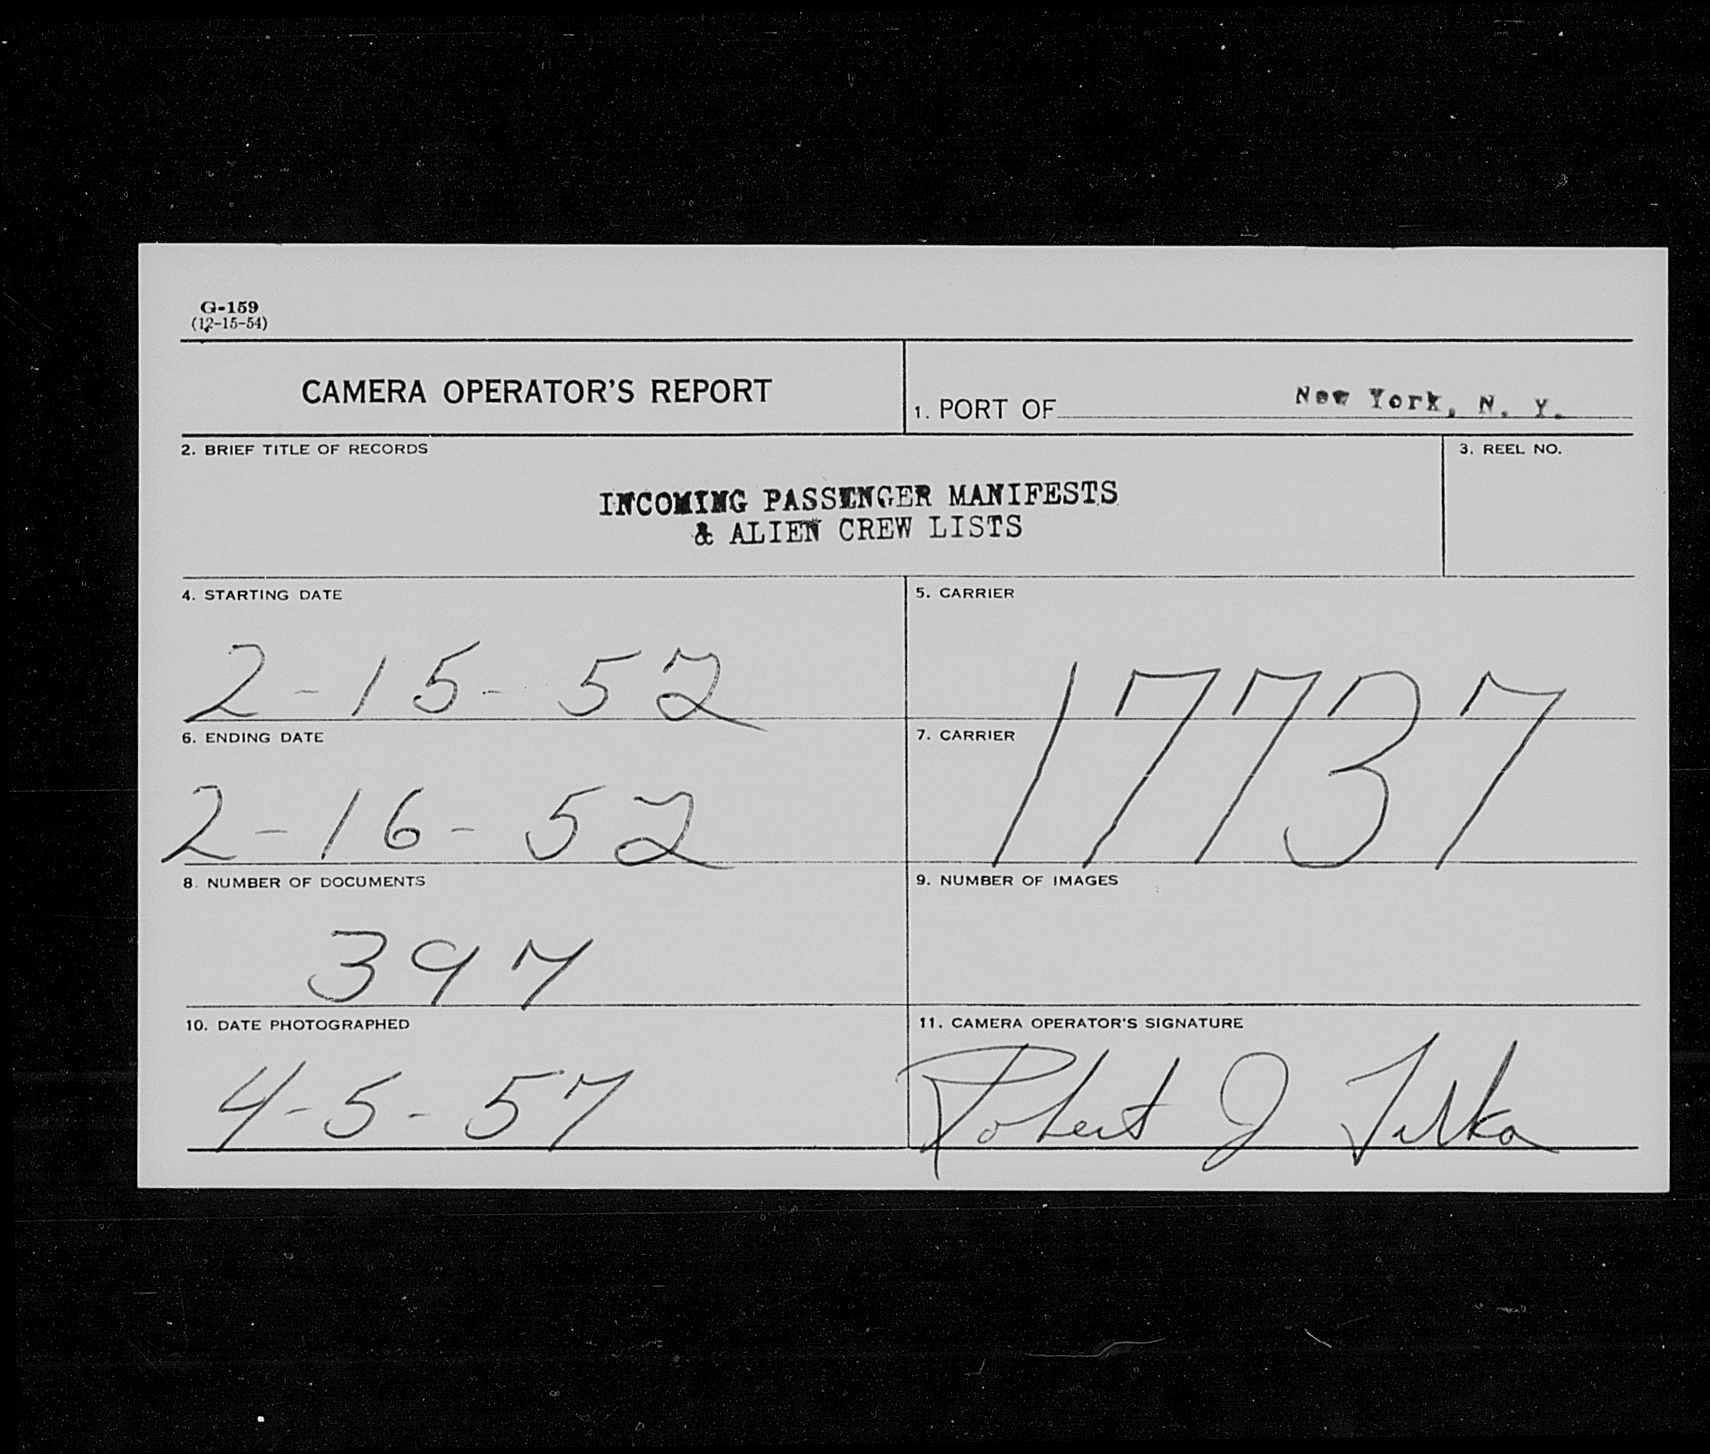 G-159
(12-15-54)
CAMERA OPERATOR'S REPORT
1. PORT OF New York, N. Y.
2. BRIEF TITLE OF RECORDS
3. REEL NO.
INCOMING PASSENGER MANIFESTS
& ALIEN CREW LISTS
4. STARTING DATE
2-15-52
5. CARRIER
17737
6. ENDING DATE
2-16-52
7. CARRIER
8. NUMBER OF DOCUMENTS
397
9. NUMBER OF IMAGES
10. DATE PHOTOGRAPHED
4-5-57
11. CAMERA OPERATOR'S SIGNATURE
Robert J